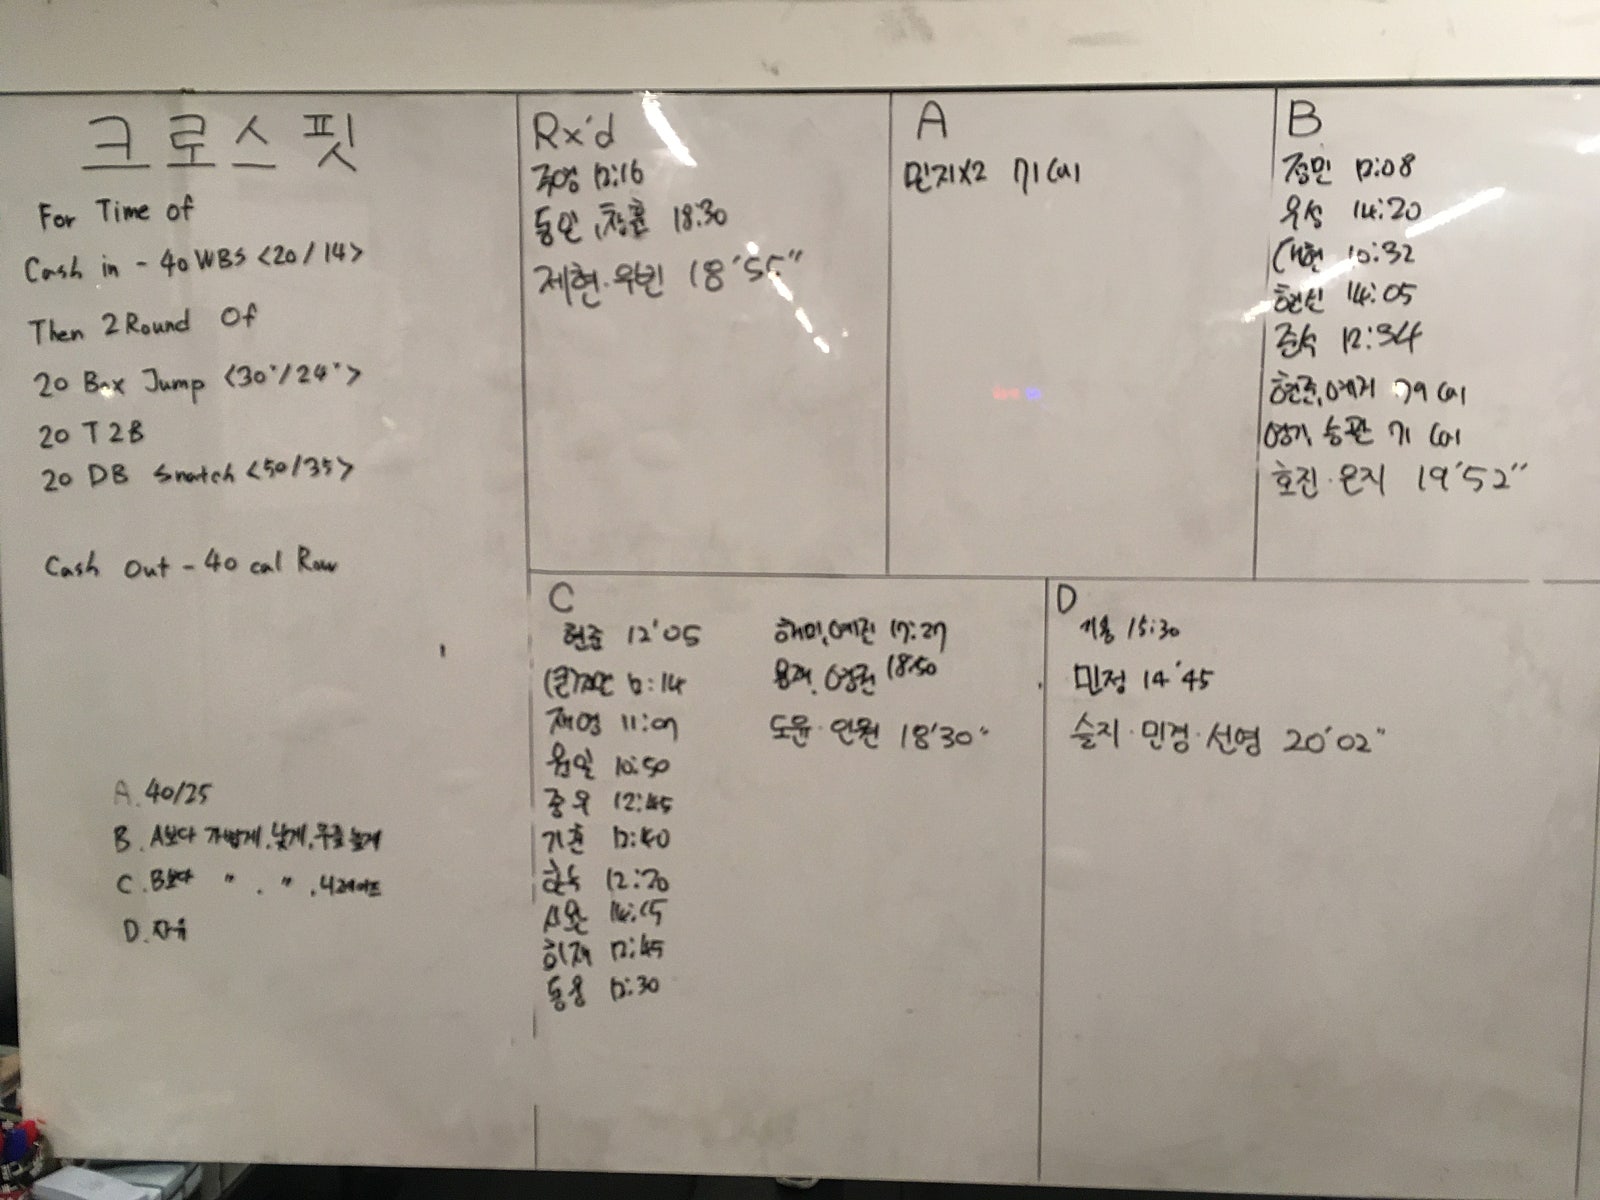 크로스핏
For Time of
Cash in - 40 WBS <20/14>
Then 2 Round Of
20 Box Jump <30"/24">
20 T2B
20 DB Snatch <50/35>
Cash Out - 40 cal Row
A. 40/25
B. A보다 가볍게, 낮게, 무릎높게
C. B보다 " . " , 니레이즈
D. 자유
Rx'd
주영 12:16
동인, 창훈 18:30
제현·우빈 18'55"
A
민지x2 71 cal
B
정민 12:08
우성 14:20
대현 10:32
현신 14:05
준석 12:34
현준, 예지 79 cal
영기, 승관 71 cal
호진·은지 19'52"
C
현준 12'05
12:14
재영 11:09
원일 10:50
종우 12:45
기훈 12:40
12:20
시완 14:15
희재 12:45
동웅 12:30
해미, 예진 17:27
용재, 영권 18:50
도윤·인원 18'30"
D
기용 15:30
민정 14'45
슬지·민경·선영 20'02"